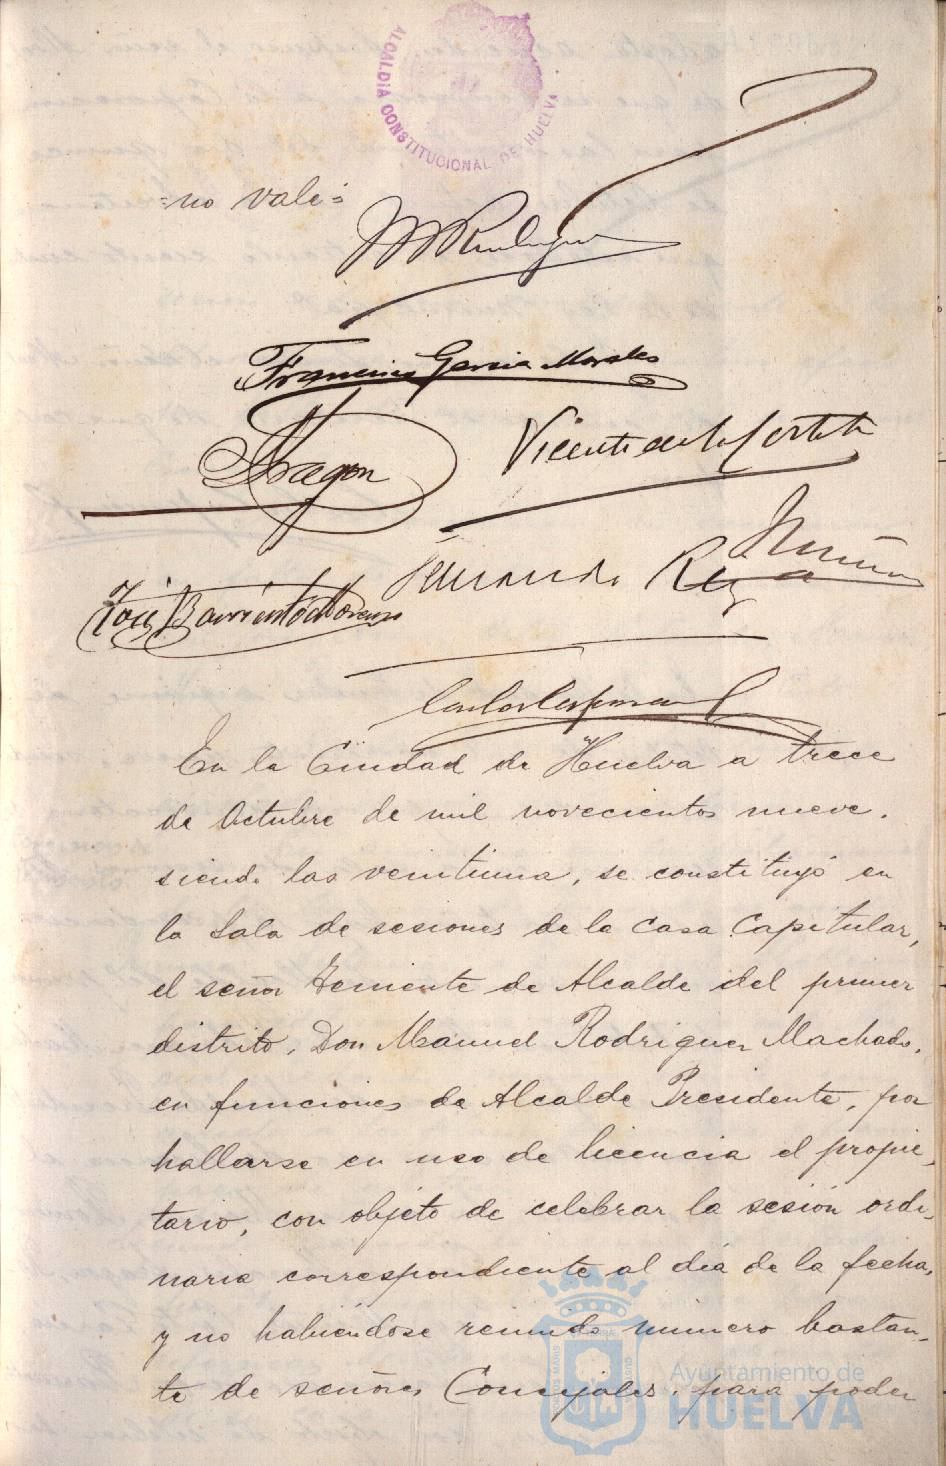 ALCALDIA CONSTITUCIONAL DE HUELVA
=no vale=
M Rodriguez
Francisco Garcia Morales
Aragon
Vicente de la Corte
Fernando Rey
José Barrientos Moreno
En la Ciudad de Huelva a trece
de Octubre de mil novecientos nueve.
siendo las veintiuna, se constituyó en
la Sala de sesiones de la Casa Capitular,
el señor Teniente de Alcalde del primer
distrito, Don Manuel Rodriguez Machado,
en funciones de Alcalde Presidente, por
hallarse en uso de licencia el propie-
tario, con objeto de celebrar la sesión ordi-
naria correspondiente al día de la fecha,
y no habiéndose reunido número bastan-
te de señores Concejales, para poder
Ayuntamiento de
HUELVA